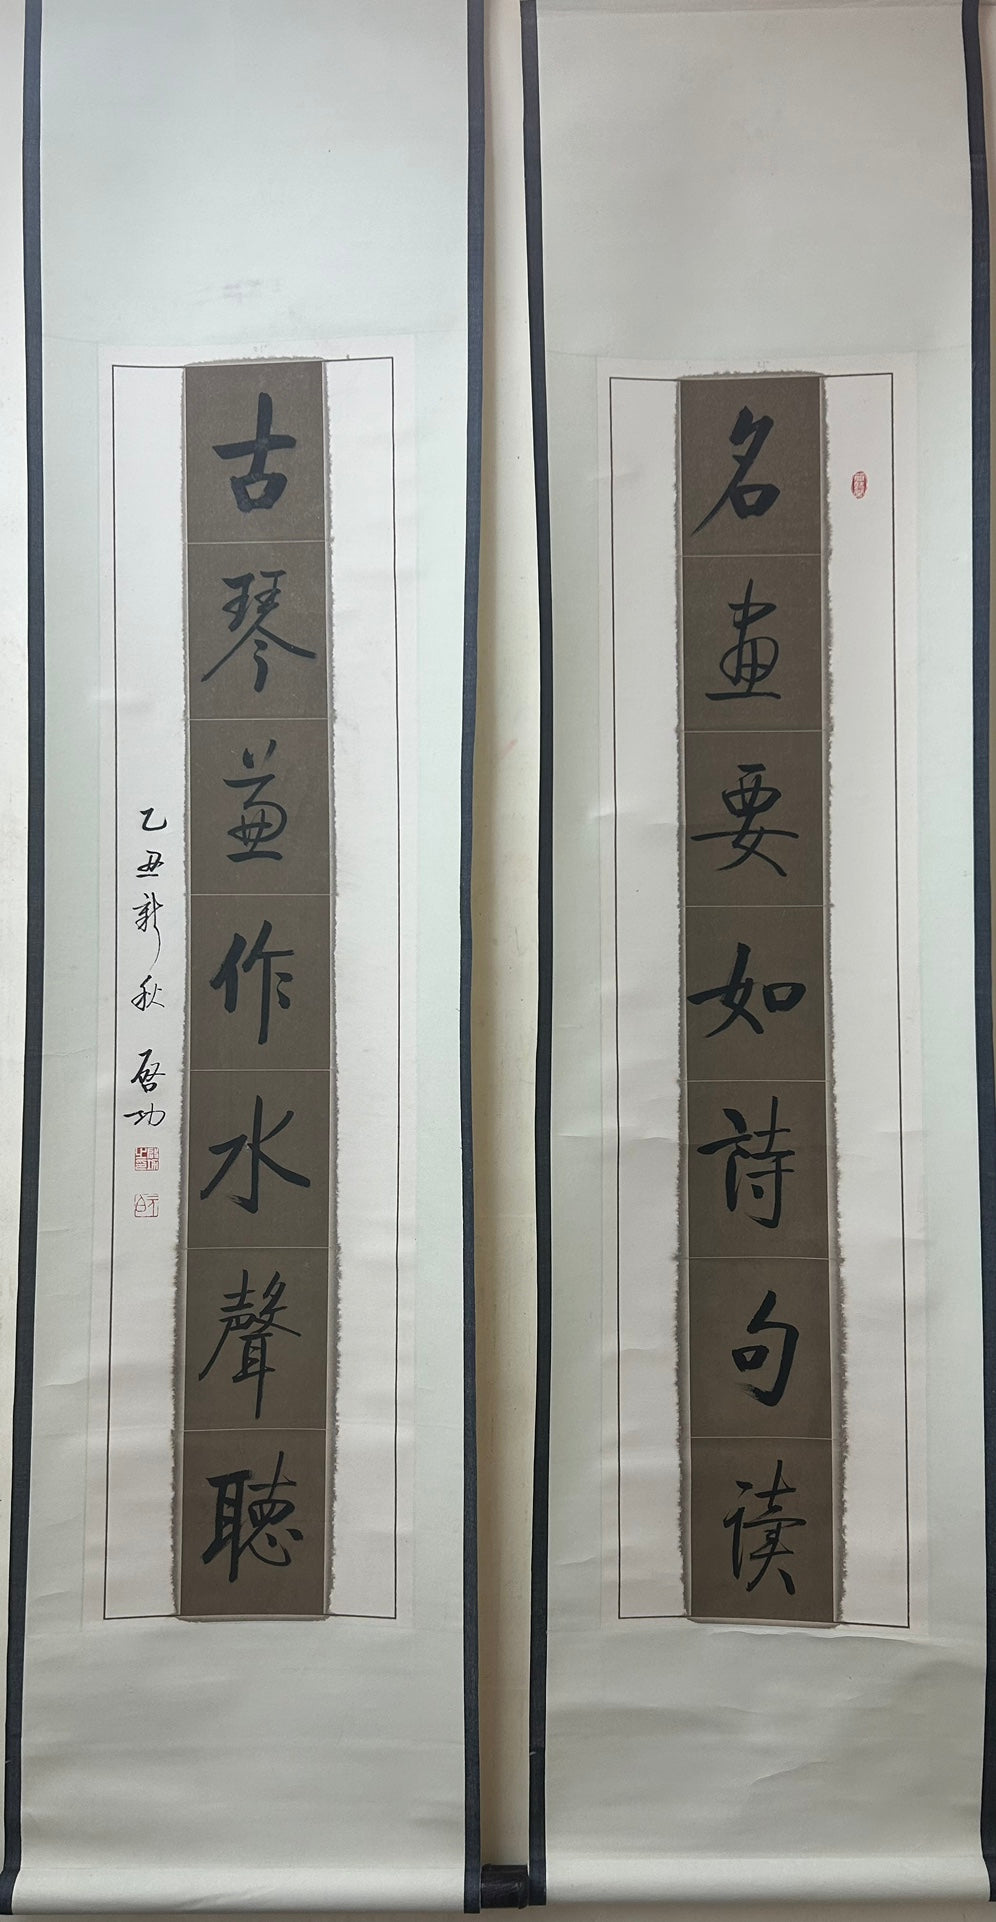 名画要如詩句读
古琴兼作水聲聽
乙丑新秋 啓功